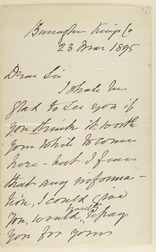 Banagher Kings Co
23 Mar 1895
Dear Sir
I shall be
glad to see you if
you think it worth
your while to come
here - but I fear
that any informa-
tion, I could give
you, would hardly pay
you for your